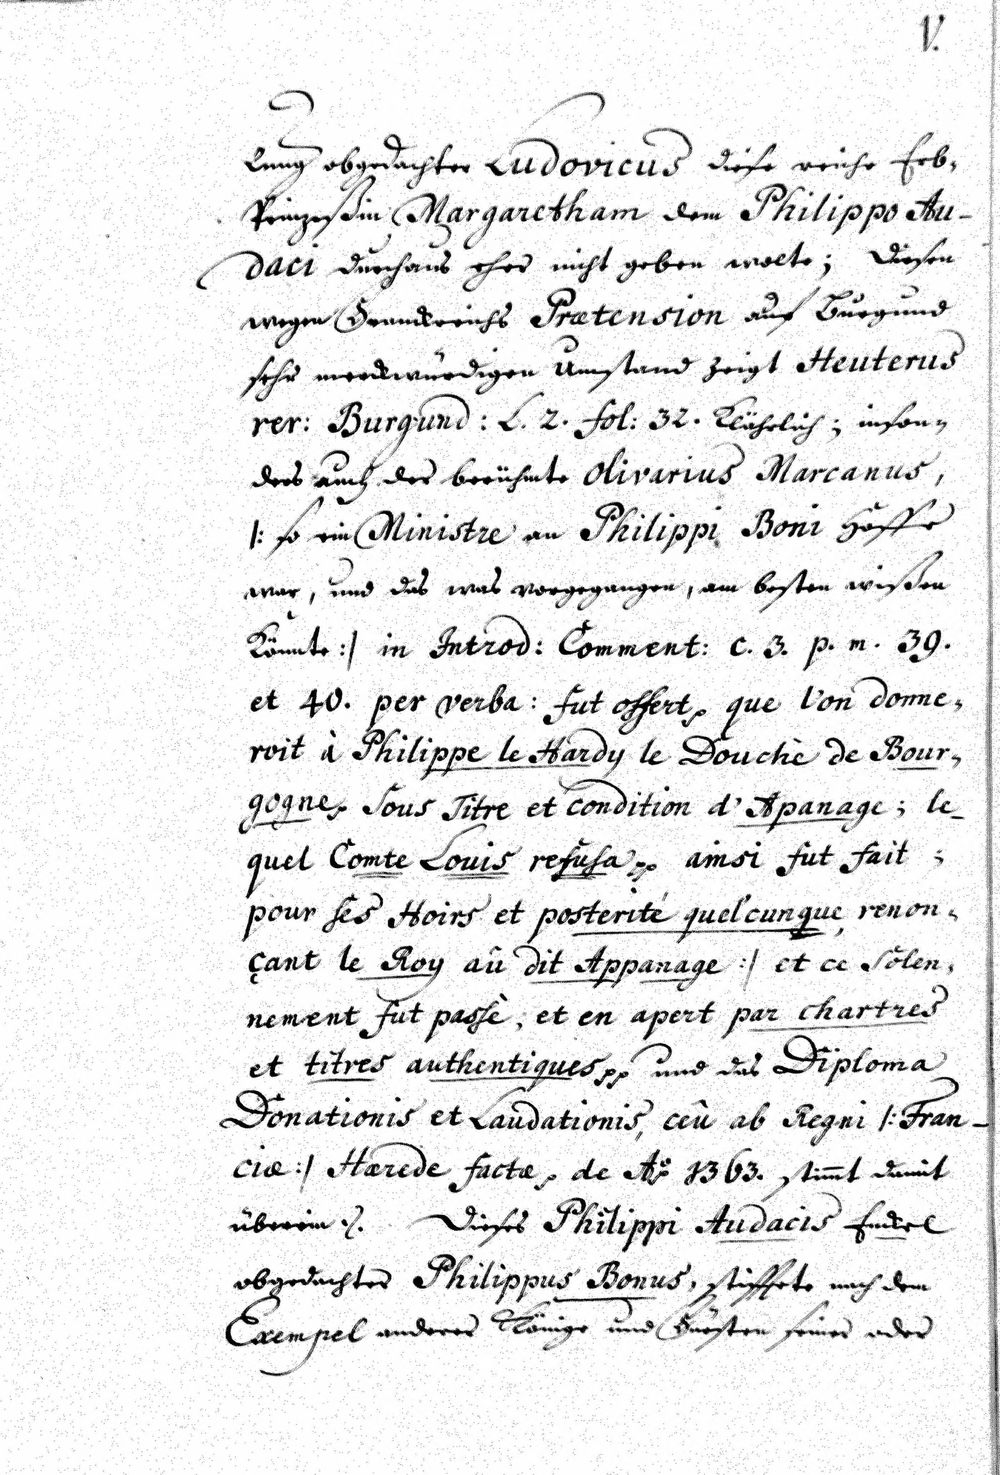 V.
lung obgedachter Ludovicus diese reiche Erb-
Prinzeßin Margaretham dem Philippo Au-
daci durchaus eher nicht geben wolte; Diesen
wegen Franckreichs Prætension auf Burgund
sehr merckwürdigen Umstand zeigt Heuterus
rer: Burgund: L. 2. fol: 32. Klährlich; inson-
ders auch der berühmte Olivarius Marcanus,
/: so ein Ministre an Philippi Boni Hoffe
war, und das was vorgegangen, am besten wißen
Könnte :/ in Introd: Comment: c. 3. p. m. 39.
et 40. per verba: fut offert, que l'on donne-
roit à Philippe le Hardy le Douchè de Bour-
gogne, sous Titre et condition d'Apanage; le-
quel Comte Louis refusa, ainsi fut fait;
pour ses Hoirs et posterité quelcunque, renon-
çant le Roy aû dit Appanage :/ et ce Solen-
nement fut passè, et en apert par chartres
et titres authentiques und das Diploma
Donationis et Laudationis, ceû ab Regni /: Fran-
ciæ :/ Hærede factæ, de Aº 1363. stimmt damit
überein. Dieses Philippi Audacis Enckel
obgedachter Philippus Bonus, stifftete nach dem
Exempel anderer Könige und Fürsten seiner oder